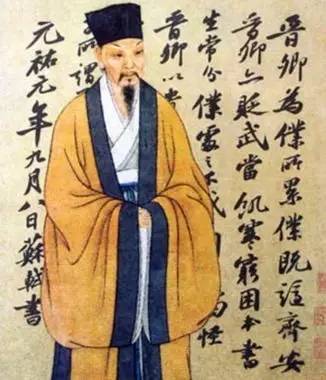 晉卿為僕所累僕既謫齊安
晉卿亦貶武當飢寒窮困本書
生常分僕處之不戚怪
晉卿以
所謂
元祐元年九月八日蘇軾書